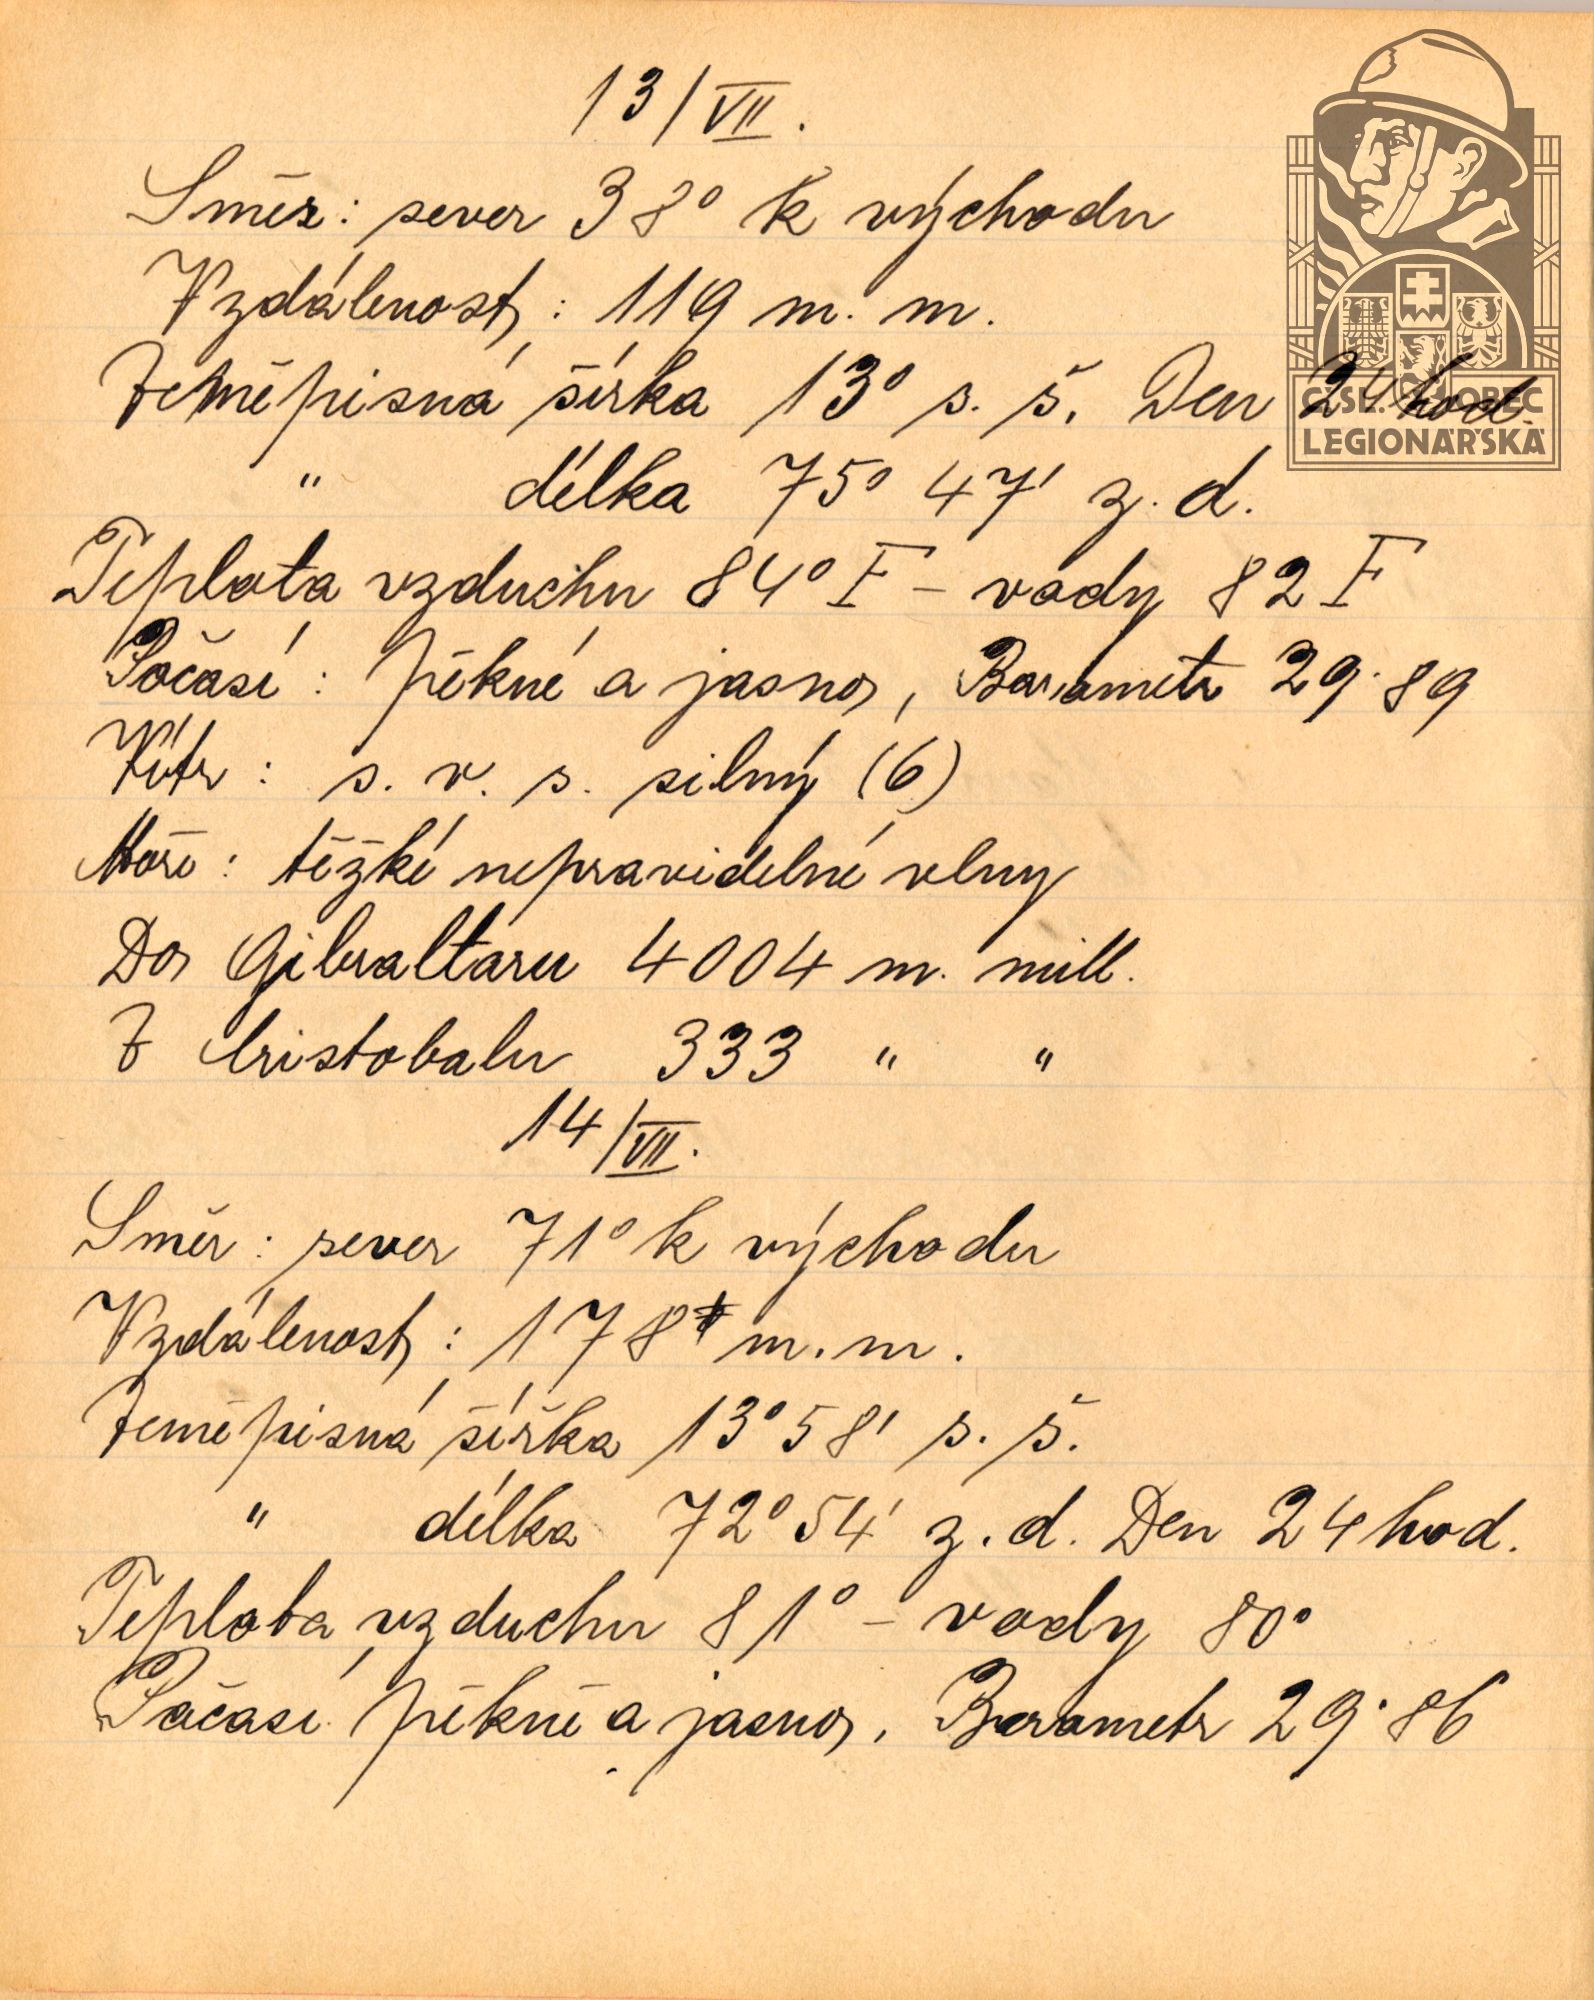 13/VII.
Směr: sever 38° k východu
Vzdálenost: 119 m. m.
Zeměpisná šírka 13° s. š. Den 24 hod.
" délka 75° 47' z. d.
Teplota vzduchu 84° F – vody 82 F
Počasí: pěkné a jasno, Barometr 29·89
Vítr: s. v. s. silný (6)
Moře: těžké nepravidelné vlny
Do Gibraltaru 4004 m. mill.
Z Cristobalu 333 " "
14/VII.
Směr: sever 71° k východu
Vzdálenost: 178 m. m.
Zeměpisná šířka 13° 58' s. š.
" délka 72° 54' z. d. Den 24 hod.
Teplota vzduchu 81° – vody 80°
Počasí pěkné a jasno, Barometr 29·86
ČSL. OBEC
LEGIONÁŘSKÁ